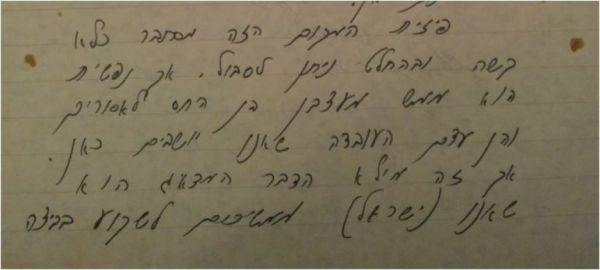 פיזית המקום הזה מסתבר כלא
קשה ובהחלט ניתן לסבול. אך נפשית
הוא ממש מעצבן הן החס לאסורים
והן עצם העובדה שאנו יושבים כאן.
אך זה מילא הדבר המצאג הוא
שאנו (ישראל) ממשיכים לשקוע בביצה